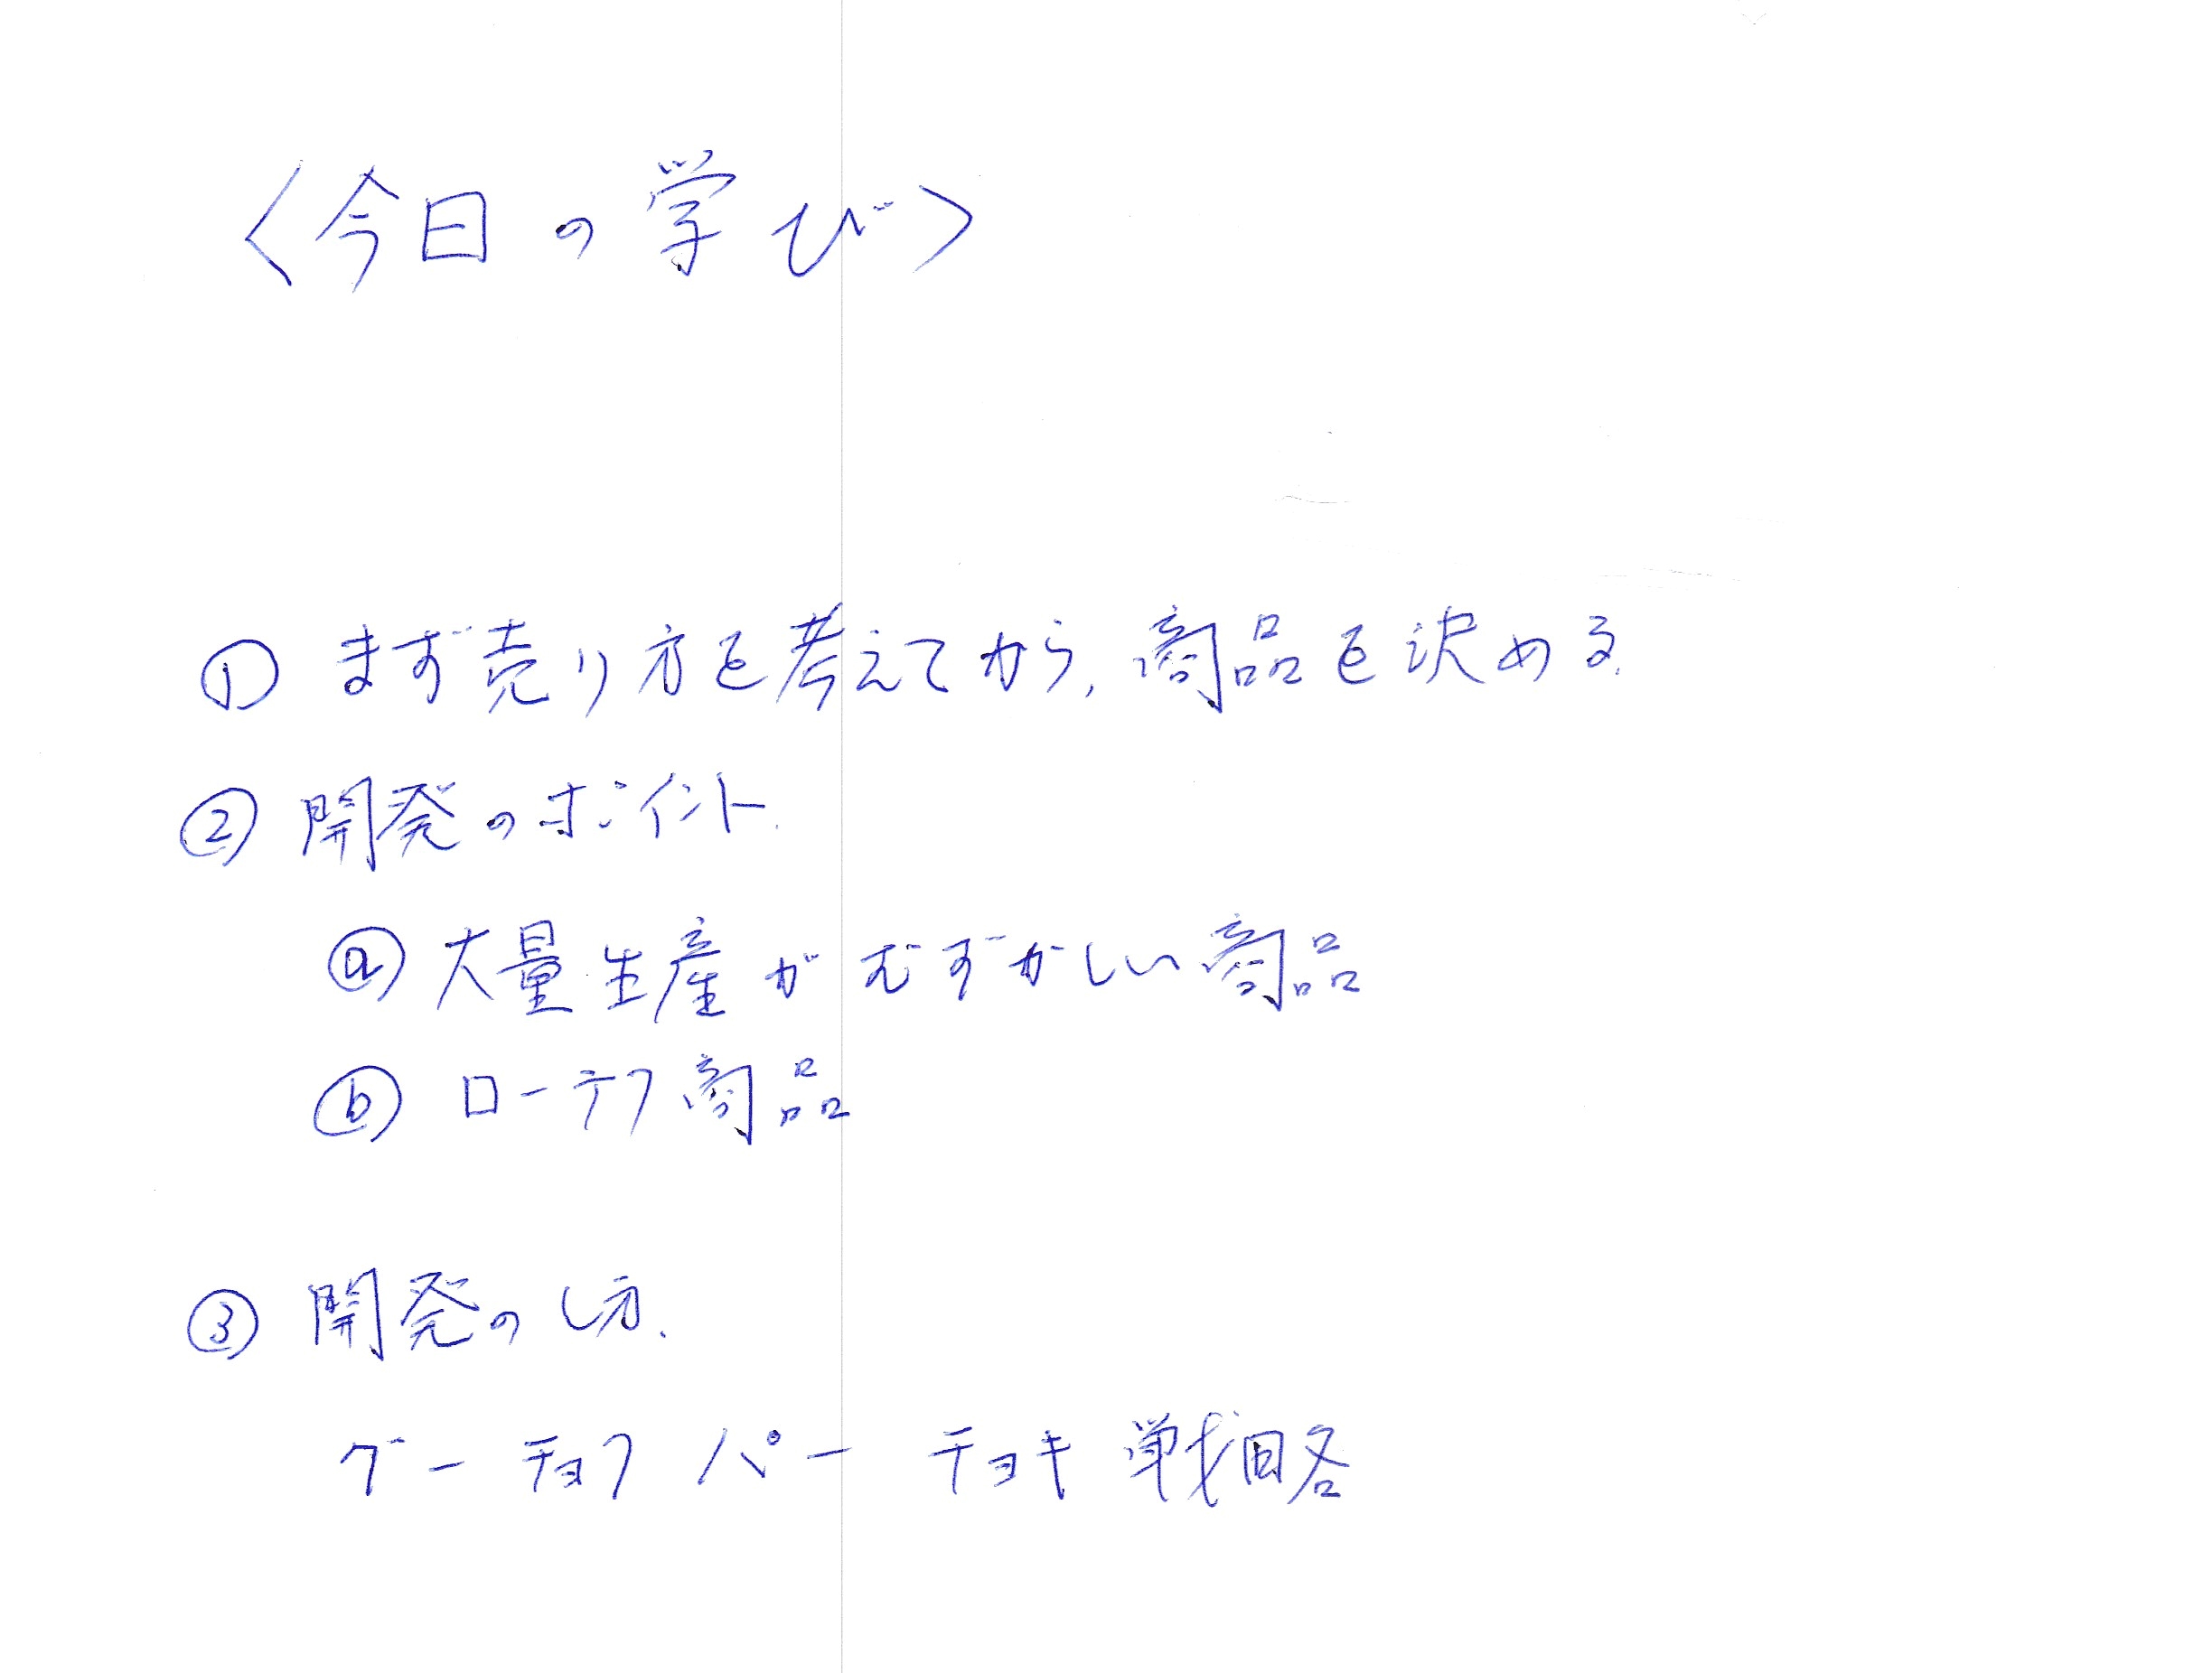 〈今日の学び〉
① まず売り方を考えてから、商品を決める.
② 開発のポイント.
ⓐ 大量生産がむずかしい商品
ⓑ ローテク商品
③ 開発のし方.
グーチョク パー チョキ 戦略